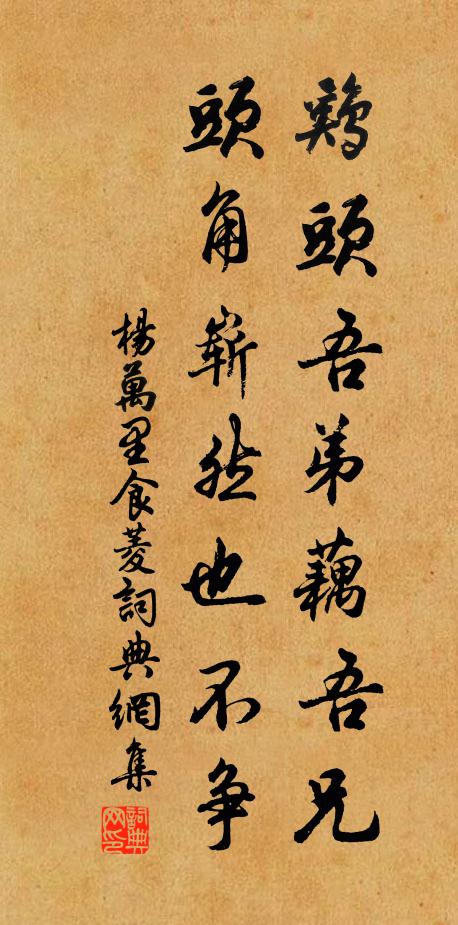 鷄頭吾弟藕吾兄
頭角嶄然也不争
楊萬里食菱詞典網集
詞典網印